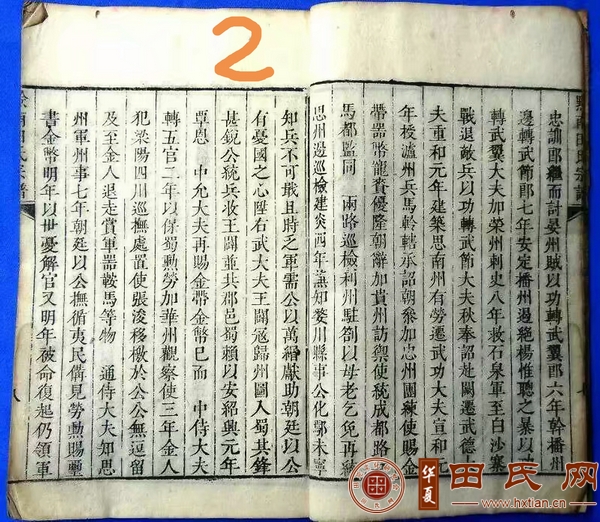 2
忠訓郎繼而討晏州賊以功轉武翼郎六年幹播州
邊轉武節郎七年安定播州邊绝楊惟聰之暴以功
轉武翼大夫加榮州刺史八年救石泉軍至白沙塞
戰退敵兵以功轉武節大夫秋奉詔赴闕遷武德大
夫重和元年建築思南州有勞遷武功大夫宣和元
年授瀘州兵馬鈐轄承詔朝參加忠州團練使賜金
帶器幣龍賚優隆朝辭加貴州訪禦使統成都路兵
馬都監同 兩路巡檢利州駐劄以母老乞免再統
思州邊巡檢建炎四年兼知婺川縣事公化鄂未寧
知兵不可戢且時之軍需公以萬緡獻助朝廷以公
有憂國之心陞右武大夫王闢冦歸州圖入蜀其鋒
甚銳公統兵收王闢並共郡邑蜀賴以安紹興元年
覃恩 中允大夫再賜金帶金幣巳而 中侍大夫
轉五官二年以保蜀勲勞加華州觀察使三年金人
犯梁陽四川巡撫處置使張浚移檄於公公無逗留
及至金人退走賞軍器鞍馬等物 通侍大夫知思
州軍州事七年朝廷以公撫循夷民備見勞勲賜璽
書金幣明年以丗憂解官又明年被命復起仍領軍
黔南田氏宗譜
八
華夏
田氏网
www.hxtian.cn